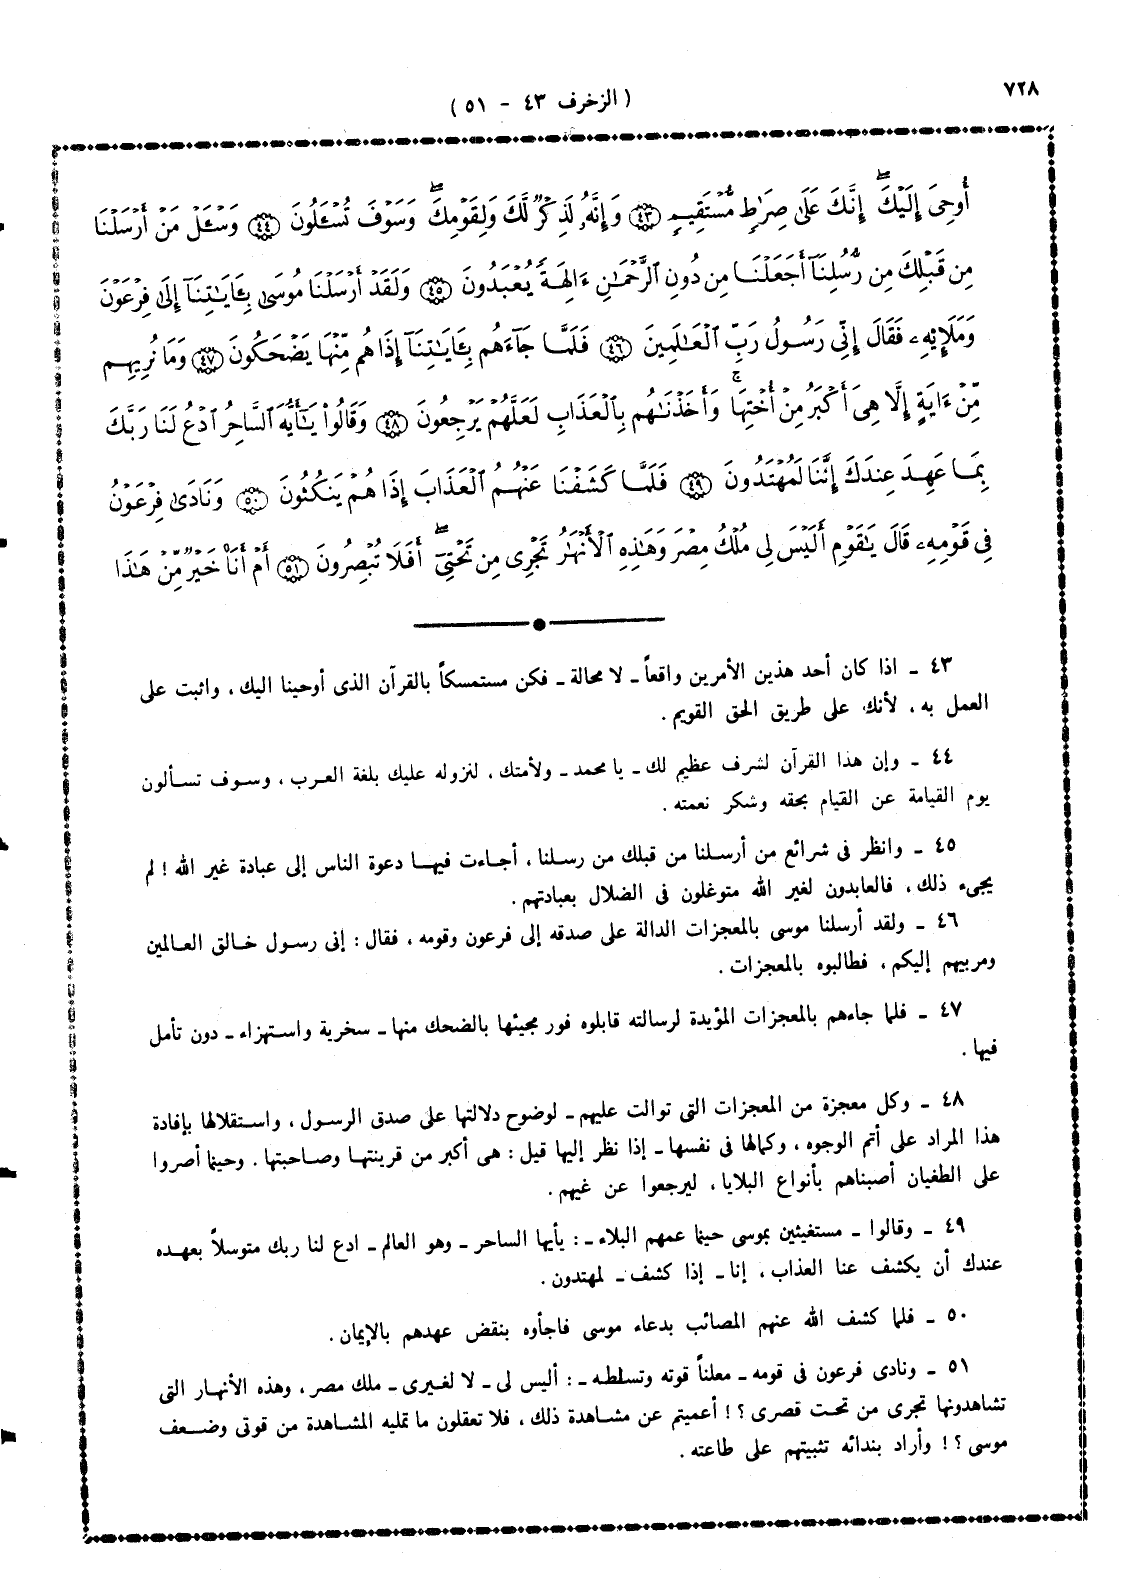 ٧٢٨
( الزخرف ٤٣ - ٥١ )
أُوحِىَ إِلَيْكَ ۖ إِنَّكَ عَلَىٰ صِرَٰطٍ مُّسْتَقِيمٍ ۝٤٣ وَإِنَّهُۥ لَذِكْرٌ لَّكَ وَلِقَوْمِكَ ۖ وَسَوْفَ تُسْـَٔلُونَ ۝٤٤ وَسْـَٔلْ مَنْ أَرْسَلْنَا
مِن قَبْلِكَ مِن رُّسُلِنَآ أَجَعَلْنَا مِن دُونِ ٱلرَّحْمَٰنِ ءَالِهَةً يُعْبَدُونَ ۝٤٥ وَلَقَدْ أَرْسَلْنَا مُوسَىٰ بِـَٔايَٰتِنَآ إِلَىٰ فِرْعَوْنَ
وَمَلَإِيْهِۦ فَقَالَ إِنِّى رَسُولُ رَبِّ ٱلْعَٰلَمِينَ ۝٤٦ فَلَمَّا جَآءَهُم بِـَٔايَٰتِنَآ إِذَا هُم مِّنْهَا يَضْحَكُونَ ۝٤٧ وَمَا نُرِيهِم
مِّنْ ءَايَةٍ إِلَّا هِىَ أَكْبَرُ مِنْ أُخْتِهَا ۚ وَأَخَذْنَٰهُم بِٱلْعَذَابِ لَعَلَّهُمْ يَرْجِعُونَ ۝٤٨ وَقَالُوا۟ يَٰٓأَيُّهَ ٱلسَّاحِرُ ٱدْعُ لَنَا رَبَّكَ
بِمَا عَهِدَ عِندَكَ إِنَّنَا لَمُهْتَدُونَ ۝٤٩ فَلَمَّا كَشَفْنَا عَنْهُمُ ٱلْعَذَابَ إِذَا هُمْ يَنكُثُونَ ۝٥٠ وَنَادَىٰ فِرْعَوْنُ
فِى قَوْمِهِۦ قَالَ يَٰقَوْمِ أَلَيْسَ لِى مُلْكُ مِصْرَ وَهَٰذِهِ ٱلْأَنْهَٰرُ تَجْرِى مِن تَحْتِىٓ ۖ أَفَلَا تُبْصِرُونَ ۝٥١ أَمْ أَنَا۠ خَيْرٌ مِّنْ هَٰذَا
٤٣ ـ اذا كان أحد هذين الأمرين واقعاً ـ لا محالة ـ فكن مستمسكاً بالقرآن الذى أوحينا اليك ، واثبت على
العمل به ، لأنك على طريق الحق القويم .
٤٤ ـ وإن هذا القرآن لشرف عظيم لك ـ يا محمد ـ ولأمتك ، لنزوله عليك بلغة العرب ، وسوف تسألون
يوم القيامة عن القيام بحقه وشكر نعمته .
٤٥ ـ وانظر فى شرائع من أرسلنا من قبلك من رسلنا ، أجاءت فيها دعوة الناس إلى عبادة غير الله ! لم
يجىء ذلك ، فالعابدون لغير الله متوغلون فى الضلال بعبادتهم .
٤٦ ـ ولقد أرسلنا موسى بالمعجزات الدالة على صدقه إلى فرعون وقومه ، فقال : إنى رسول خالق العالمين
ومربيهم إليكم ، فطالبوه بالمعجزات .
٤٧ ـ فلما جاءهم بالمعجزات المؤيدة لرسالته قابلوه فور مجيئها بالضحك منها ـ سخرية واستهزاء ـ دون تأمل
فيها .
٤٨ ـ وكل معجزة من المعجزات التى توالت عليهم ـ لوضوح دلالتها على صدق الرسول ، واستقلالها بإفادة
هذا المراد على أتم الوجوه ، وكمالها فى نفسها ـ إذا نظر إليها قيل : هى أكبر من قرينتها وصاحبتها . وحينما أصروا
على الطغيان أصبناهم بأنواع البلايا ، ليرجعوا عن غيهم .
٤٩ ـ وقالوا ـ مستغيثين بموسى حينما عمهم البلاء ـ : يأيها الساحر ـ وهو العالم ـ ادع لنا ربك متوسلاً بعهده
عندك أن يكشف عنا العذاب ، إنا ـ إذا كشف ـ لمهتدون .
٥٠ ـ فلما كشف الله عنهم المصائب بدعاء موسى فاجأوه بنقض عهدهم بالإيمان .
٥١ ـ ونادى فرعون فى قومه ـ معلناً قوته وتسلطه ـ : أليس لى ـ لا لغيرى ـ ملك مصر ، وهذه الأنهار التى
تشاهدونها تجرى من تحت قصرى ؟ ! أعميتم عن مشاهدة ذلك ، فلا تعقلون ما تمليه المشاهدة من قوتى وضعف
موسى ؟ ! وأراد بندائه تثبيتهم على طاعته .